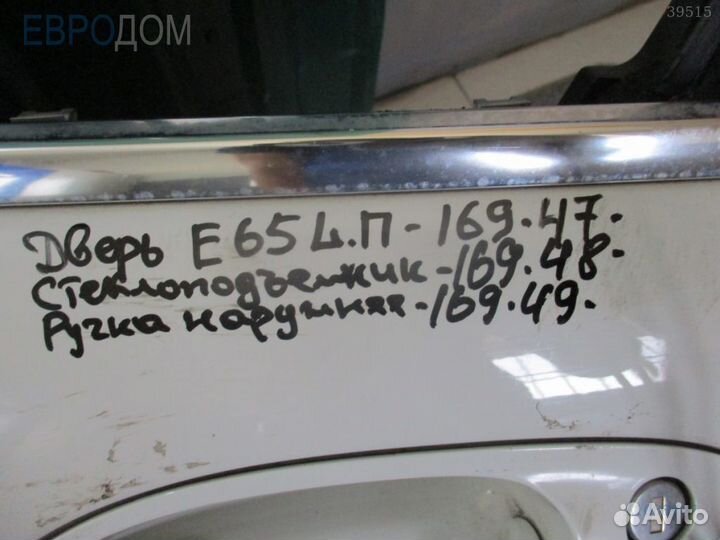 39515
ЕВРОДОМ
Дверь E65 L.П - 169.47.
Стеклоподъемник - 169.48.
Ручка наружняя - 169.49.
Avito